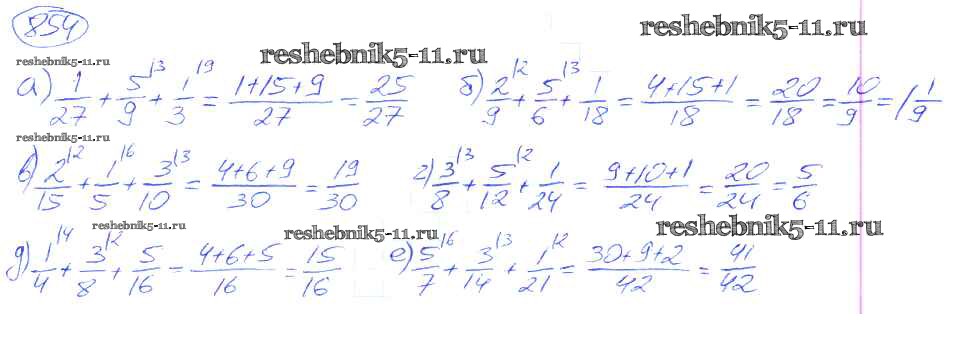 854
reshebnik5-11.ru
reshebnik5-11.ru
reshebnik5-11.ru
а) 1/27 + 5/9 |3 + 1/3 |9 = (1+15+9)/27 = 25/27 б) 2/9 |2 + 5/6 |3 + 1/18 = (4+15+1)/18 = 20/18 = 10/9 = 1 1/9
reshebnik5-11.ru
в) 2/15 |2 + 1/5 |6 + 3/10 |3 = (4+6+9)/30 = 19/30 г) 3/8 |3 + 5/12 |2 + 1/24 = (9+10+1)/24 = 20/24 = 5/6
reshebnik5-11.ru reshebnik5-11.ru reshebnik5-11.ru
д) 1/4 |4 + 3/8 |2 + 5/16 = (4+6+5)/16 = 15/16 е) 5/7 |6 + 3/14 |3 + 1/21 |2 = (30+9+2)/42 = 41/42
reshebnik5-11.ru